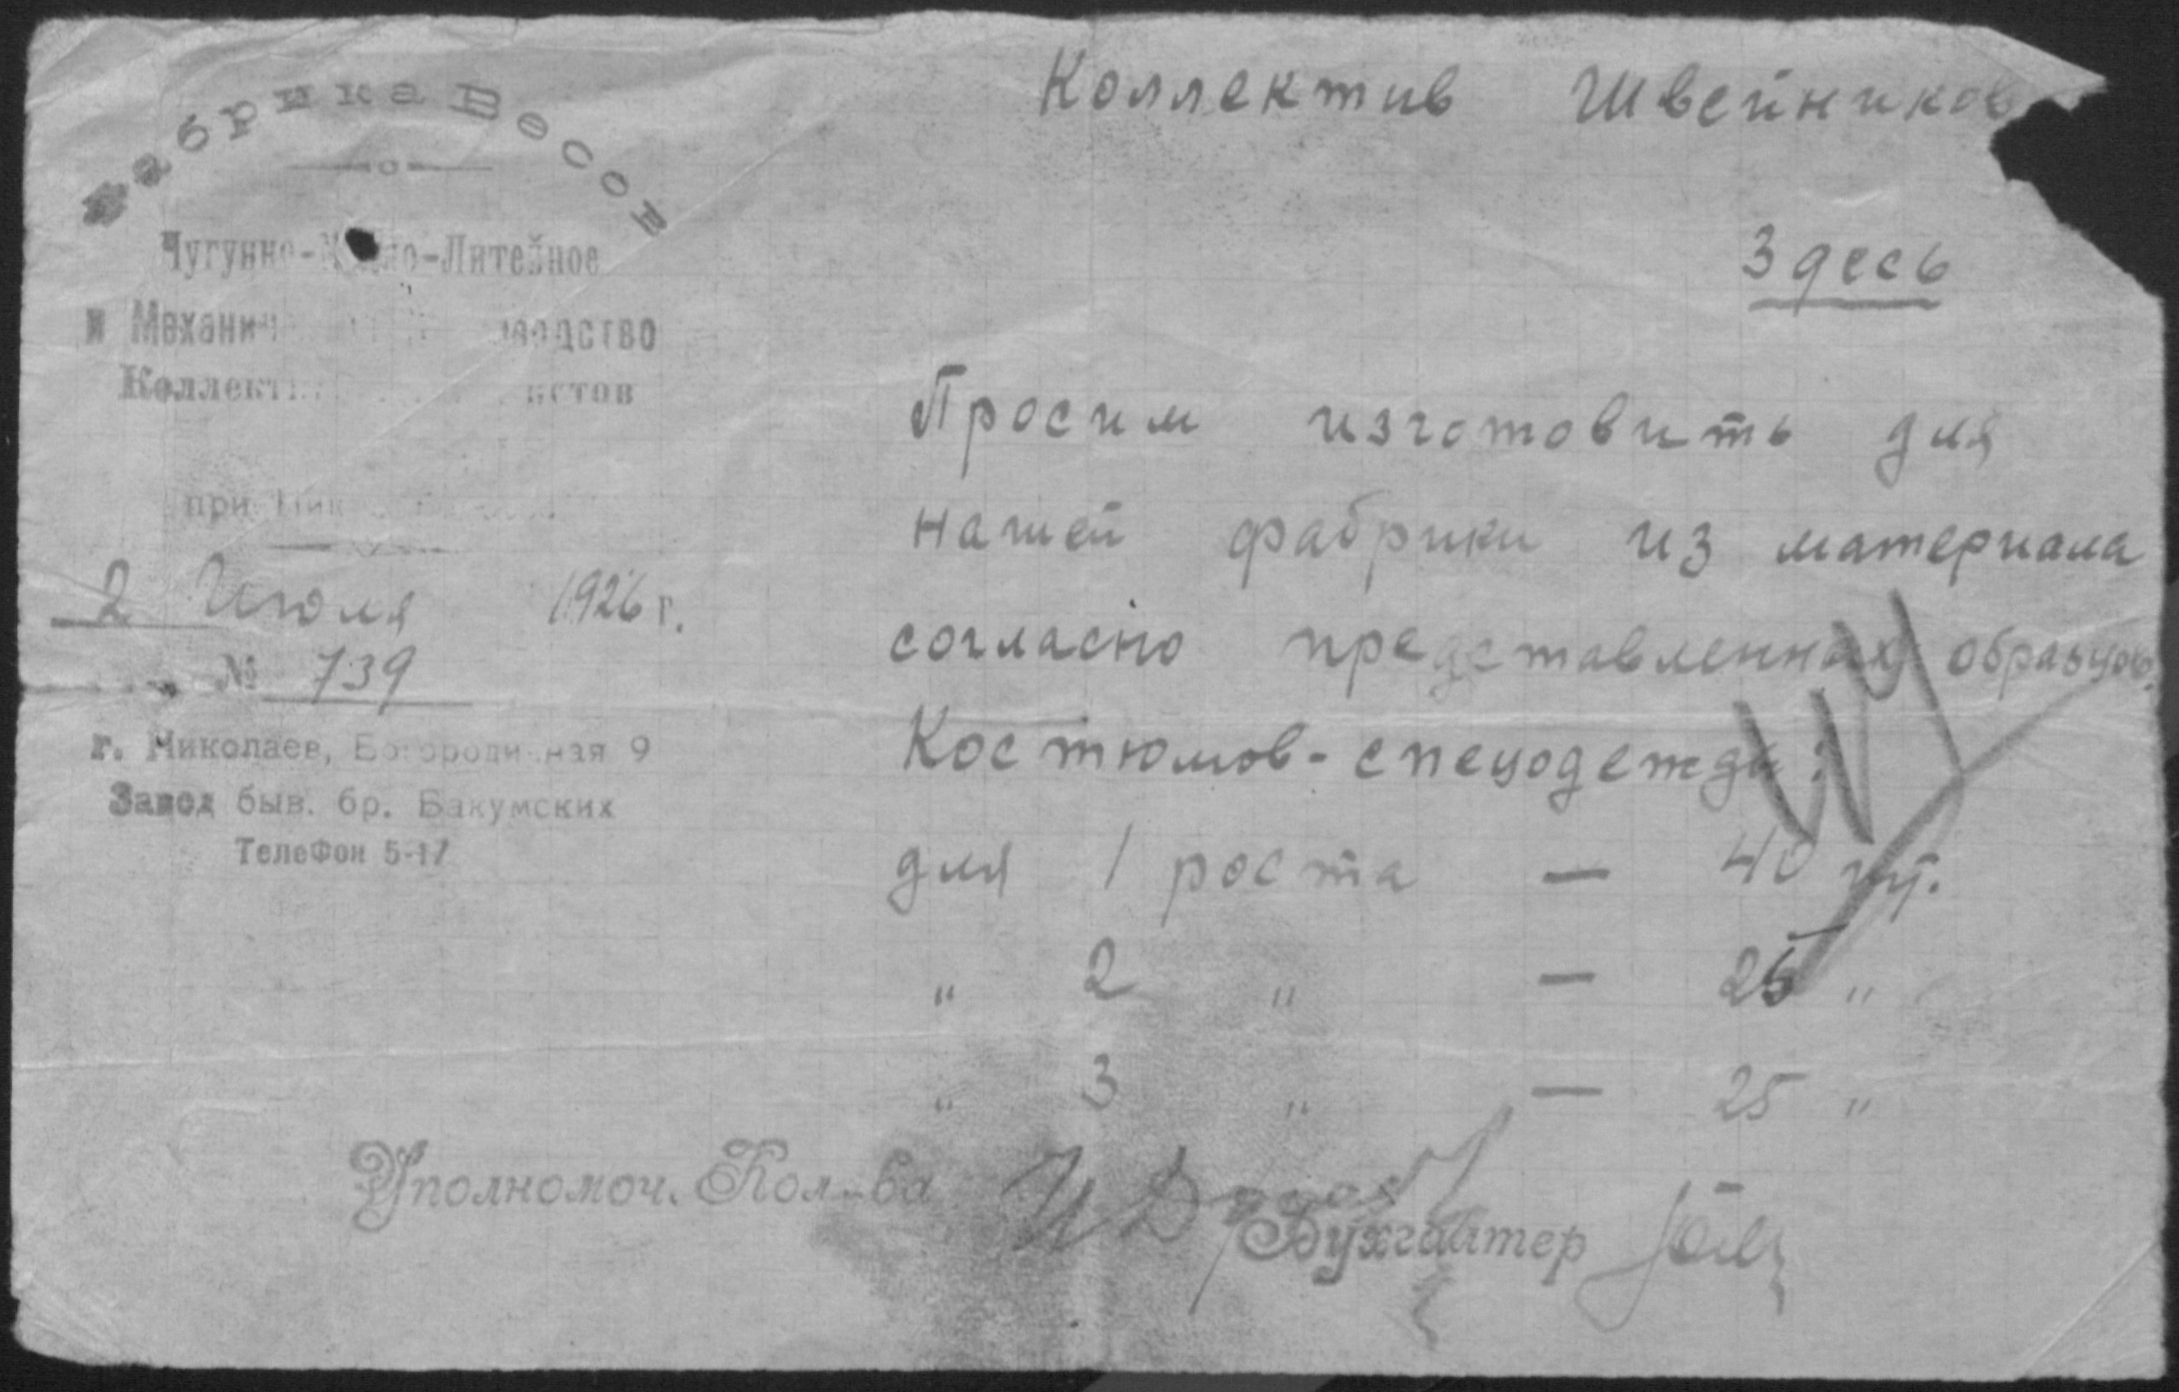 Фабрика Весов
Чугунно- -Литейное
и
Коллектив
при
2 Июля 1926 г.
№ 739
г. Николаев, Богородичная 9
Завод быв. бр. Бакумских
Телефон 5-17
Коллектив Швейников
Здесь
Просим изготовить для
нашей фабрики из материала
согласно представленных образцов
Костюмов-спецодежды:
для 1 роста — 40 шт.
„ 2 „ — 25 „
„ 3 „ — 25 „
Уполномоч. Кол-ва
Бухгалтер